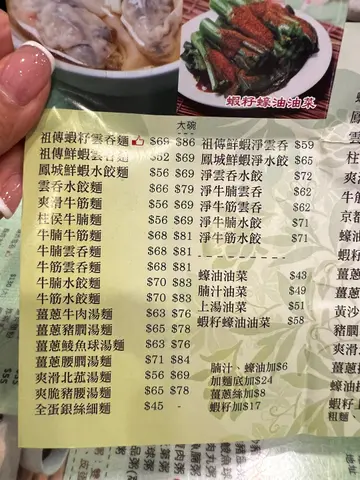 蝦籽蠔油油菜
大碗
祖傳蝦籽雲吞麵 $69 $86
祖傳鮮蝦雲吞麵 $52 $69
鳳城鮮蝦水餃麵 $56 $69
雲吞水餃麵 $66 $79
爽滑牛腩麵 $56 $69
柱侯牛筋麵 $56 $69
牛腩牛筋麵 $68 $81
牛腩雲吞麵 $68 $81
牛筋雲吞麵 $68 $81
牛腩水餃麵 $70 $83
牛筋水餃麵 $70 $83
薑蔥牛肉湯麵 $63 $76
薑蔥豬膶湯麵 $65 $78
薑蔥鯪魚球湯麵 $63 $76
薑蔥腰膶湯麵 $71 $84
爽滑北菰湯麵 $56 $69
爽脆豬腰湯麵 $65 $78
全蛋銀絲細麵 $45 -
祖傳鮮蝦淨雲吞 $59
鳳城鮮蝦淨水餃 $65
淨雲吞水餃 $72
淨牛腩雲吞 $62
淨牛筋雲吞 $62
淨牛腩水餃 $71
淨牛筋水餃 $71
蠔油油菜 $43
腩汁油菜 $49
上湯油菜 $51
蝦籽蠔油油菜 $58
腩汁、蠔油加$6
加麵底加$24
薑蔥絲加$8
蝦籽加$17